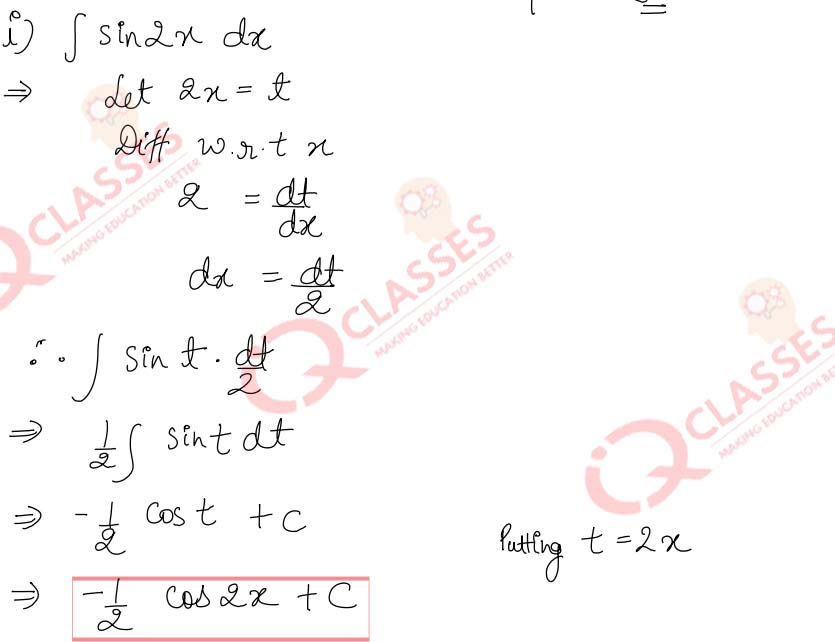 i) ∫ sin2x dx
⇒ Let 2x = t
Diff w.r.t x
2 = dt/dx
dx = dt/2
∴ ∫ sin t · dt/2
⇒ 1/2 ∫ sint dt
⇒ -1/2 cos t + C
Putting t = 2x
⇒ -1/2 cos 2x + C
CLASSES
MAKING EDUCATION BETTER
CLASSES
MAKING EDUCATION BETTER
CLASSES
MAKING EDUCATION BE